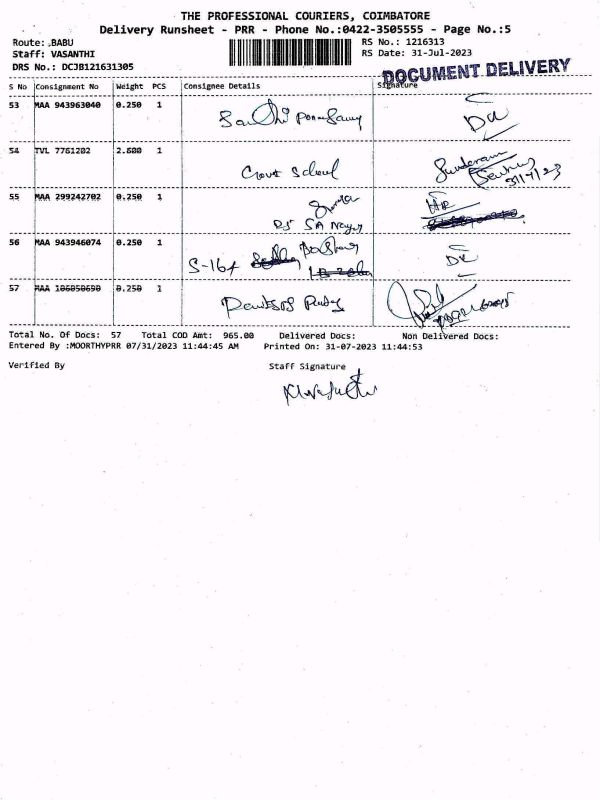 THE PROFESSIONAL COURIERS, COIMBATORE
Delivery Runsheet - PRR - Phone No.:0422-3505555 - Page No.:5
Route: ,BABU RS No.: 1216313
Staff: VASANTHI RS Date: 31-Jul-2023
DRS No.: DCJB121631305 DOCUMENT DELIVERY
S No Consignment No Weight PCS Consignee Details Signature
53 MAA 943963040 0.250 1
54 TVL 7761202 2.600 1 Govt School Sundaram 31/7/23
55 MAA 299242702 0.250 1 SA Nagar
56 MAA 943946074 0.250 1 S-164
57 MAA 186050690 0.250 1
Total No. Of Docs: 57 Total COD Amt: 965.00 Delivered Docs: Non Delivered Docs:
Entered By :MOORTHYPRR 07/31/2023 11:44:45 AM Printed On: 31-07-2023 11:44:53
Verified By Staff Signature